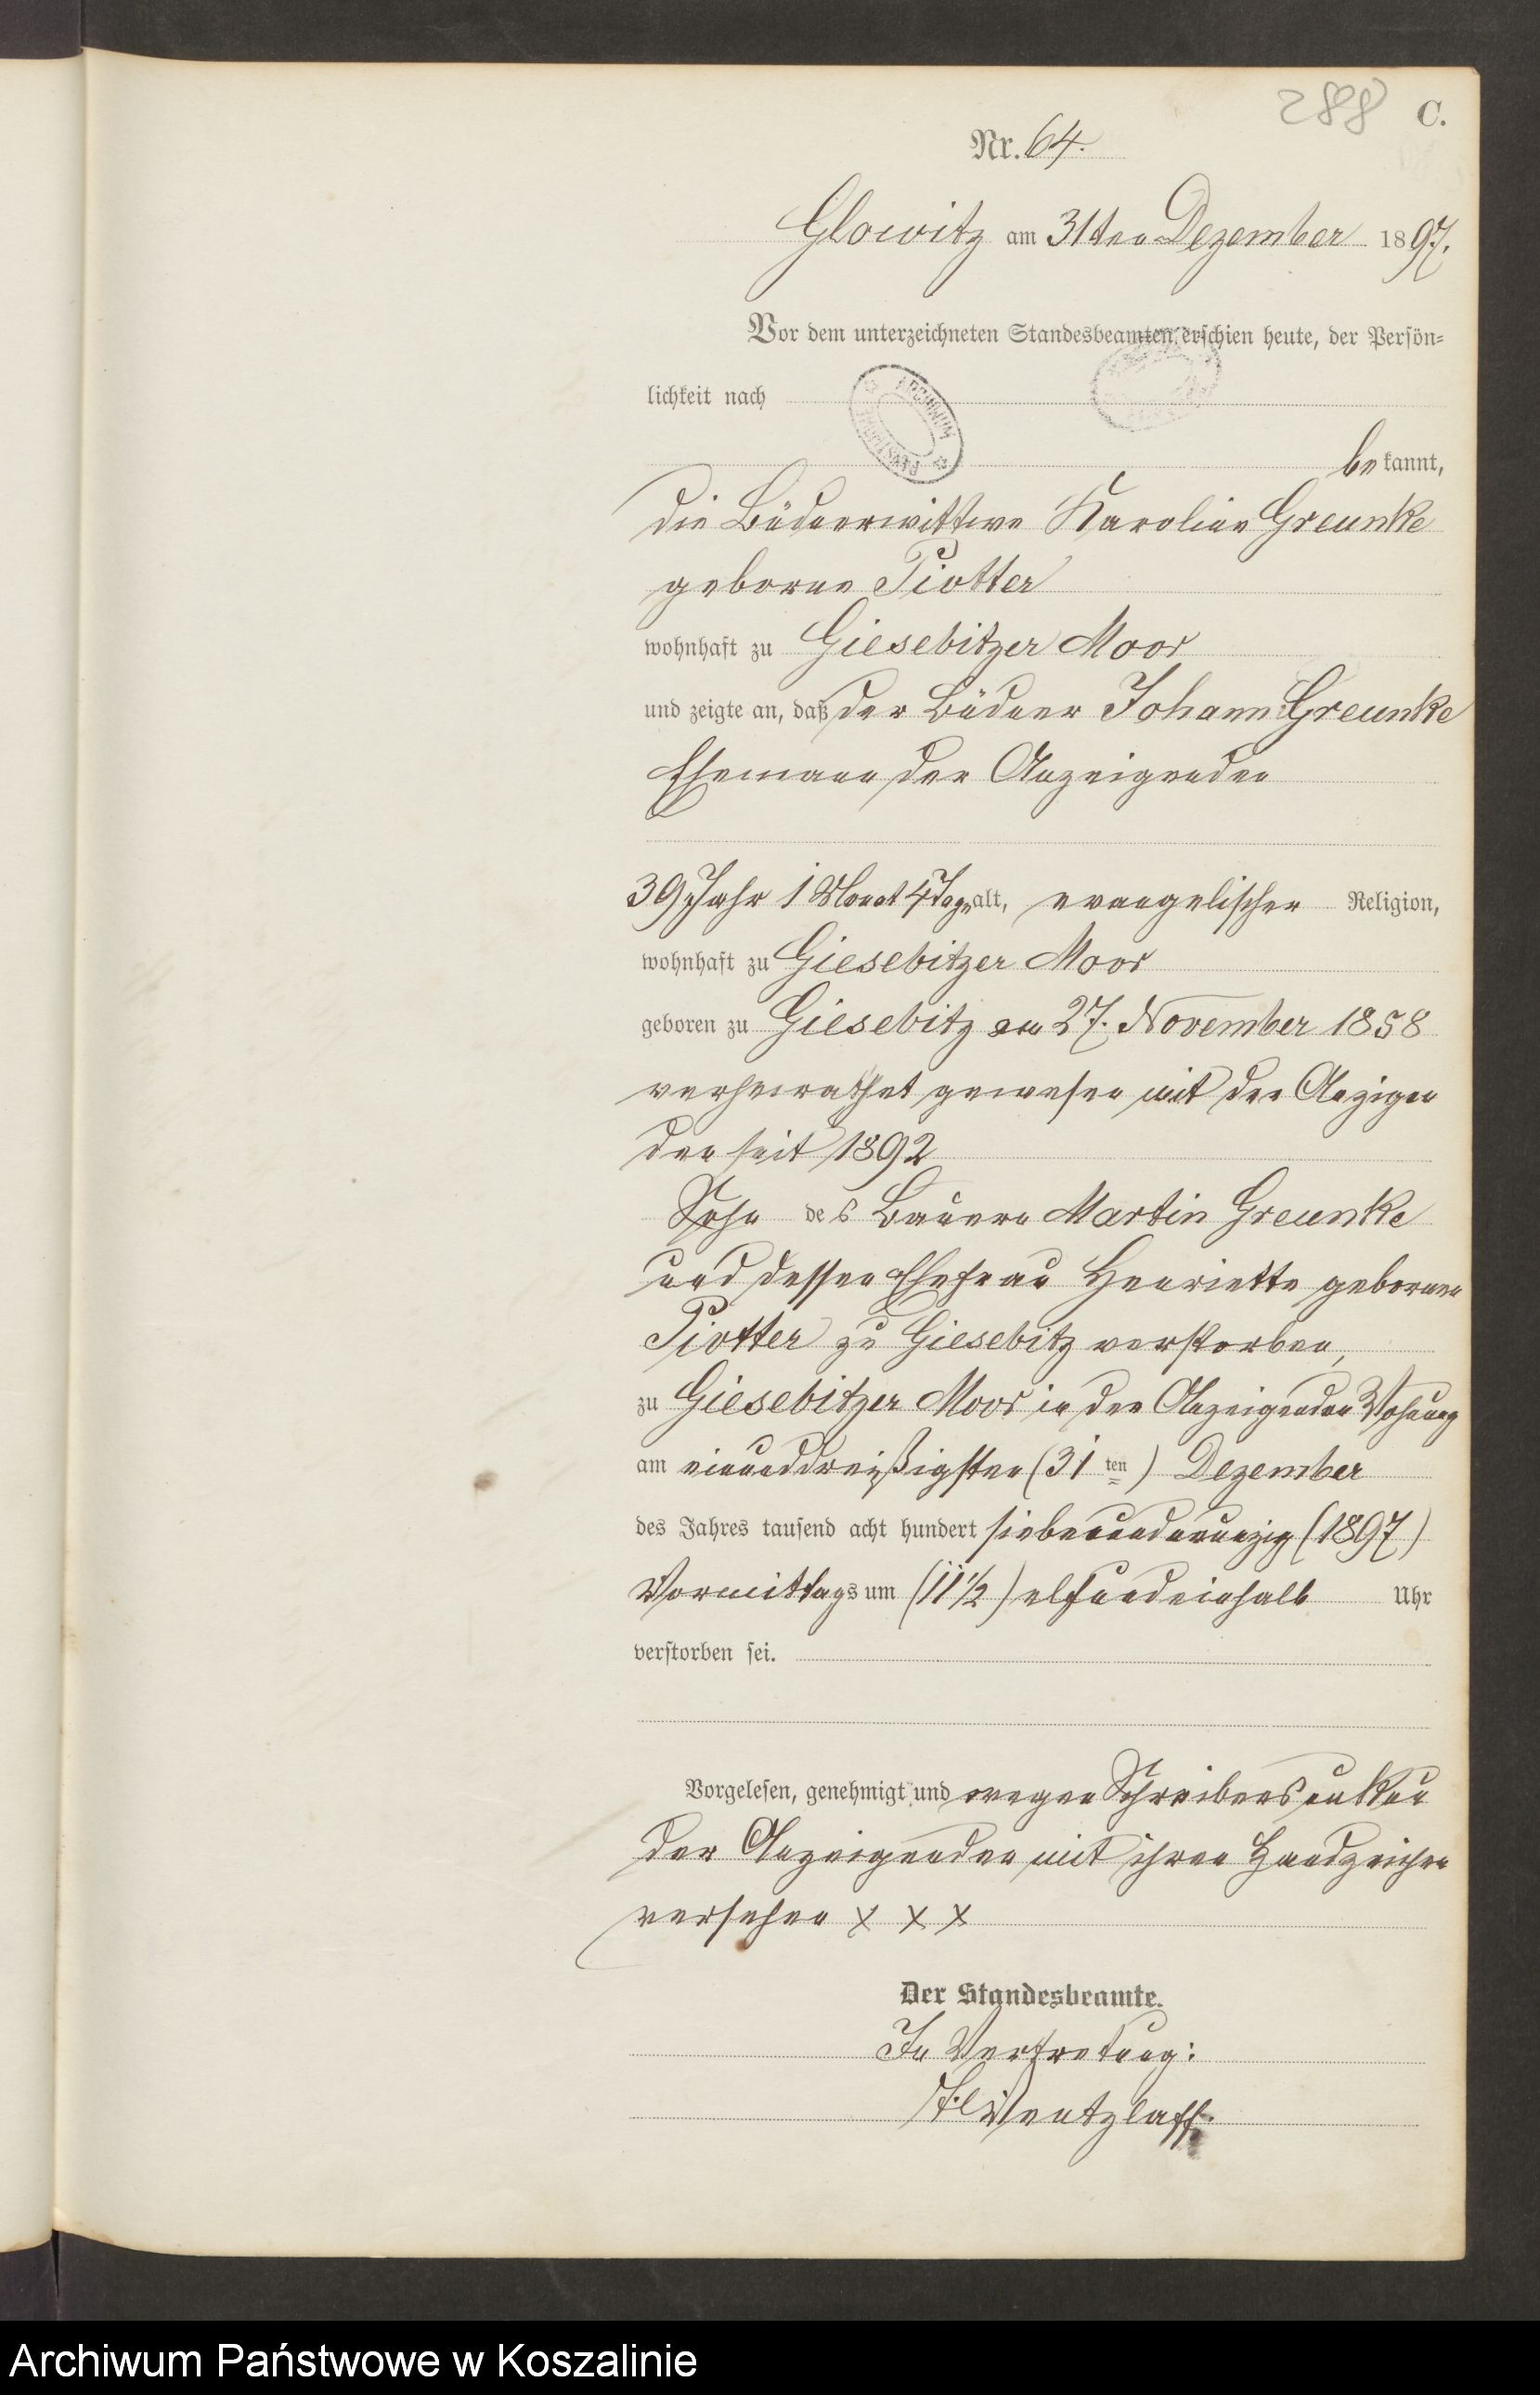 288 C.
Nr. 64.
Glowitz am 31ten Dezember 1897.
Vor dem unterzeichneten Standesbeamten erschien heute, der Persön=
lichkeit nach
bekannt,
die Büdnerwittwe Karoline Greunke
geborne Piotter
wohnhaft zu Giesebitzer Moor
und zeigte an, daß der Büdner Johann Greunke
Ehemann der Anzeigenden
39 Jahr 1 Monat 4 Tage alt, evangelischer Religion,
wohnhaft zu Giesebitzer Moor
geboren zu Giesebitz am 27. November 1858
verheirathet gewesen mit der Anzigen
den seit 1892
Sohn des Bauern Martin Greunke
und dessen Ehefrau Henriette gebornen
Piotter zu Giesebitz verstorben,
zu Giesebitzer Moor in der Anzeigenden Wohnung
am einunddreißigsten (31 ten) Dezember
des Jahres tausend acht hundert siebenundneunzig (1897)
Vormittags um (11 1/2) elfundeinhalb Uhr
verstorben sei.
Vorgelesen, genehmigt und wegen Schreibensunkun
der Anzeigenden mit ihren Handzeichen
versehen x x x
Der Standesbeamte.
In Vertretung:
Wentzlaff.
ARCHIWUM
Archiwum Państwowe w Koszalinie